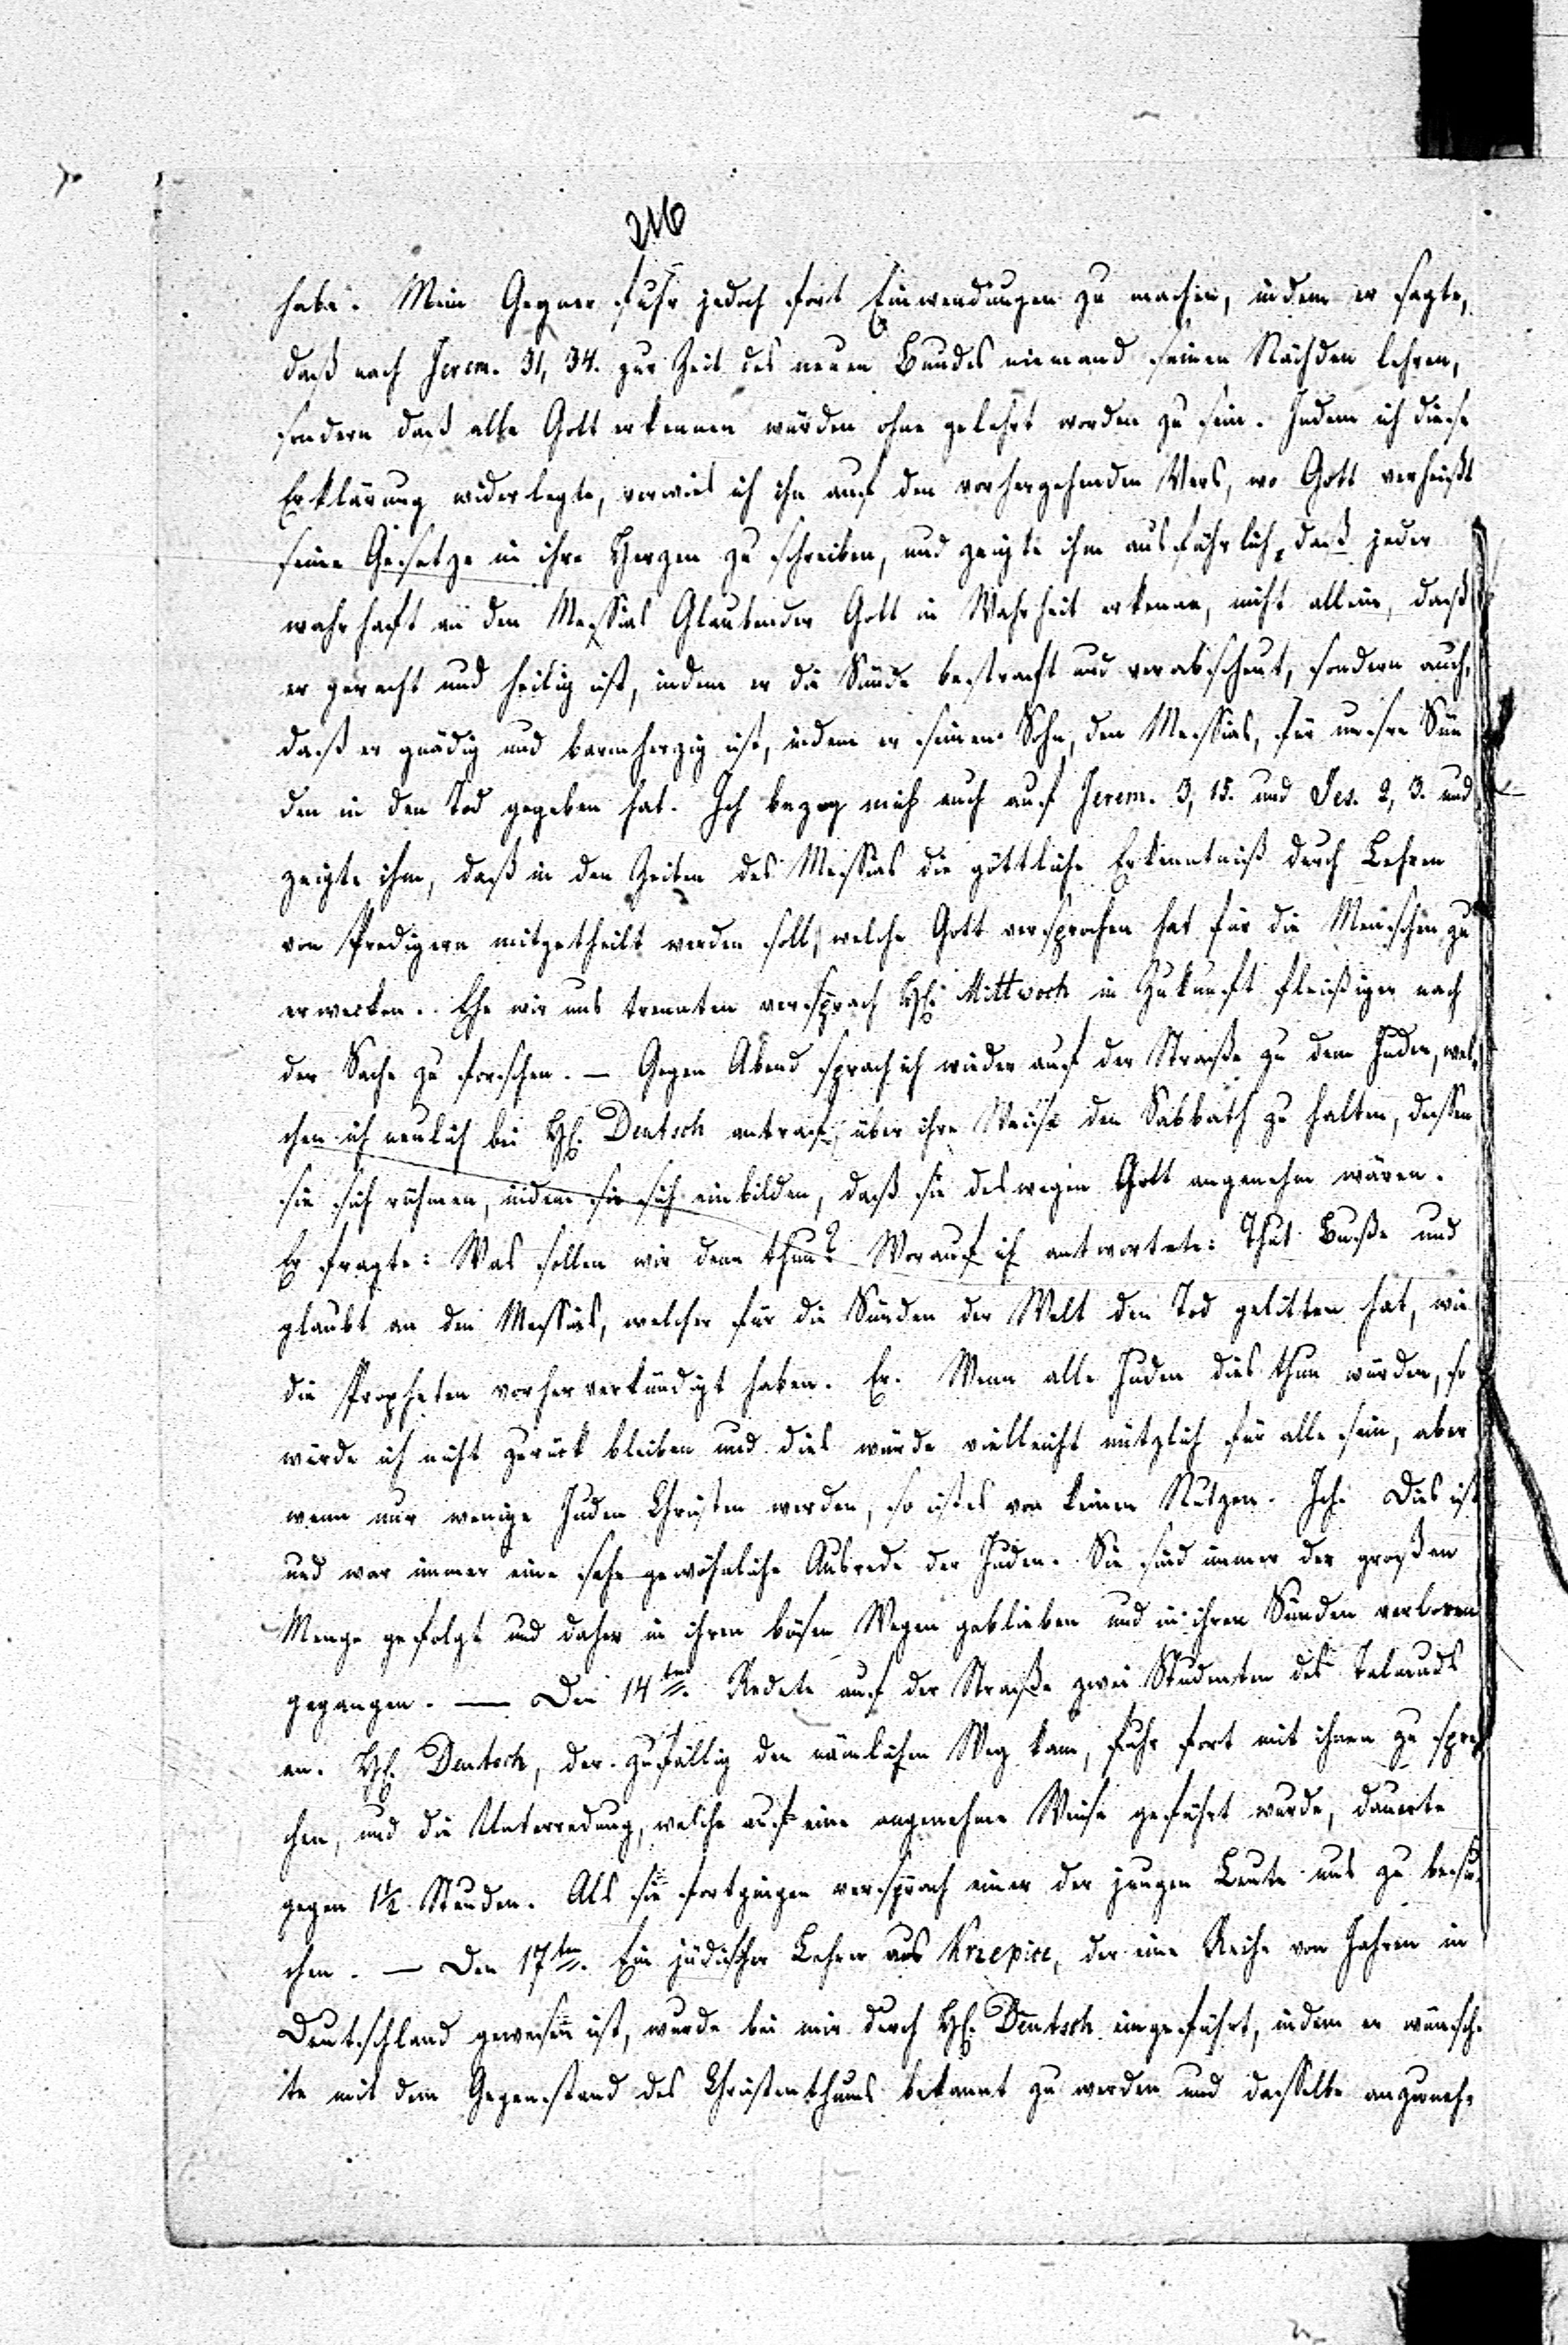 216
habe. Mein Gegner fuhr jedoch fort Einwendungen zu machen, indem er sagte,
daß nach Jerem. 31, 34. zur Zeit des neuen Bundes niemand seinen Nächsten lehren,
sondern daß alle Gott erkennen würden ohne gelehrt worden zu sein. Indem ich diese
Erklärung widerlegte, verwies ich ihn auf den vorhergehenden Vers, wo Gott verheißt
seine Gesetze in ihre Herzen zu schreiben, und zeigte ihm ausführlich, daß jeder
wahrhaft an den Messias Glaubender Gott in Wahrheit erkenne, nicht allein, daß
er gerecht und heilig ist, indem er die Sünde bestraft und verabscheut, sondern auch,
daß er gnädig und barmherzig ist, indem er seinen Sohn, den Messias, für unsre Sün
den in den Tod gegeben hat. Ich bezog mich auch auf Jerem. 3, 15. und Jes. 2, 3. und
zeigte ihm, daß in den Zeiten des Messias die göttliche Erkenntniß durch Lehren
von Predigern mitgetheilt werden soll, welche Gott versprochen hat für die Menschen zu
erwecken. Ehe wir uns trennten versprach H. Mittwoch in Zukunft fleißiger nach
der Sache zu forschen. — Gegen Abend sprach ich wieder auf der Straße zu dem Juden, wel-
chen ich neulich bei H. Deutsch antraf, über ihre Weise den Sabbath zu halten, dessen
sie sich rühmen, indem sie sich einbilden, daß sie deswegen Gott angenehm wären.
Er fragte: Was sollen wir denn thun? Worauf ich antwortete: Thut Buße und
glaubt an den Messias, welcher für die Sünden der Welt den Tod gelitten hat, wie
die Propheten vorherverkündigt haben. Er. Wenn alle Juden dies thun würden, so
würde ich nicht zurück bleiben und dies würde vielleicht nützlich für alle sein, aber
wenn nur wenige Juden Christen werden, so ist es von keinem Nutzen. Ich. Dies ist
und war immer eine sehr gewöhnliche Ausrede der Juden. Sie sind immer der großen
Menge gefolgt und daher in ihren bösen Wegen geblieben und in ihren Sünden verloren
gegangen. — Den 14ten. Redete auf der Straße zwei Studenten des Talmuds
an. H. Deutsch, der zufällig den nämlichen Weg kam, fuhr fort mit ihnen zu spre
chen, und die Unterredung, welche auf eine angenehme Weise geführt wurde, dauerte
gegen 1½ Stunden. Als sie fortgingen versprach einer der jungen Leute uns zu besu-
chen. — Den 17ten. Ein jüdischer Lehrer aus Krzepice, der eine Reihe von Jahren in
Deutschland gewesen ist, wurde bei mir durch H. Deutsch eingeführt, indem er wünsch-
te mit dem Gegenstand des Christenthums bekannt zu werden und dasselbe anzuneh-